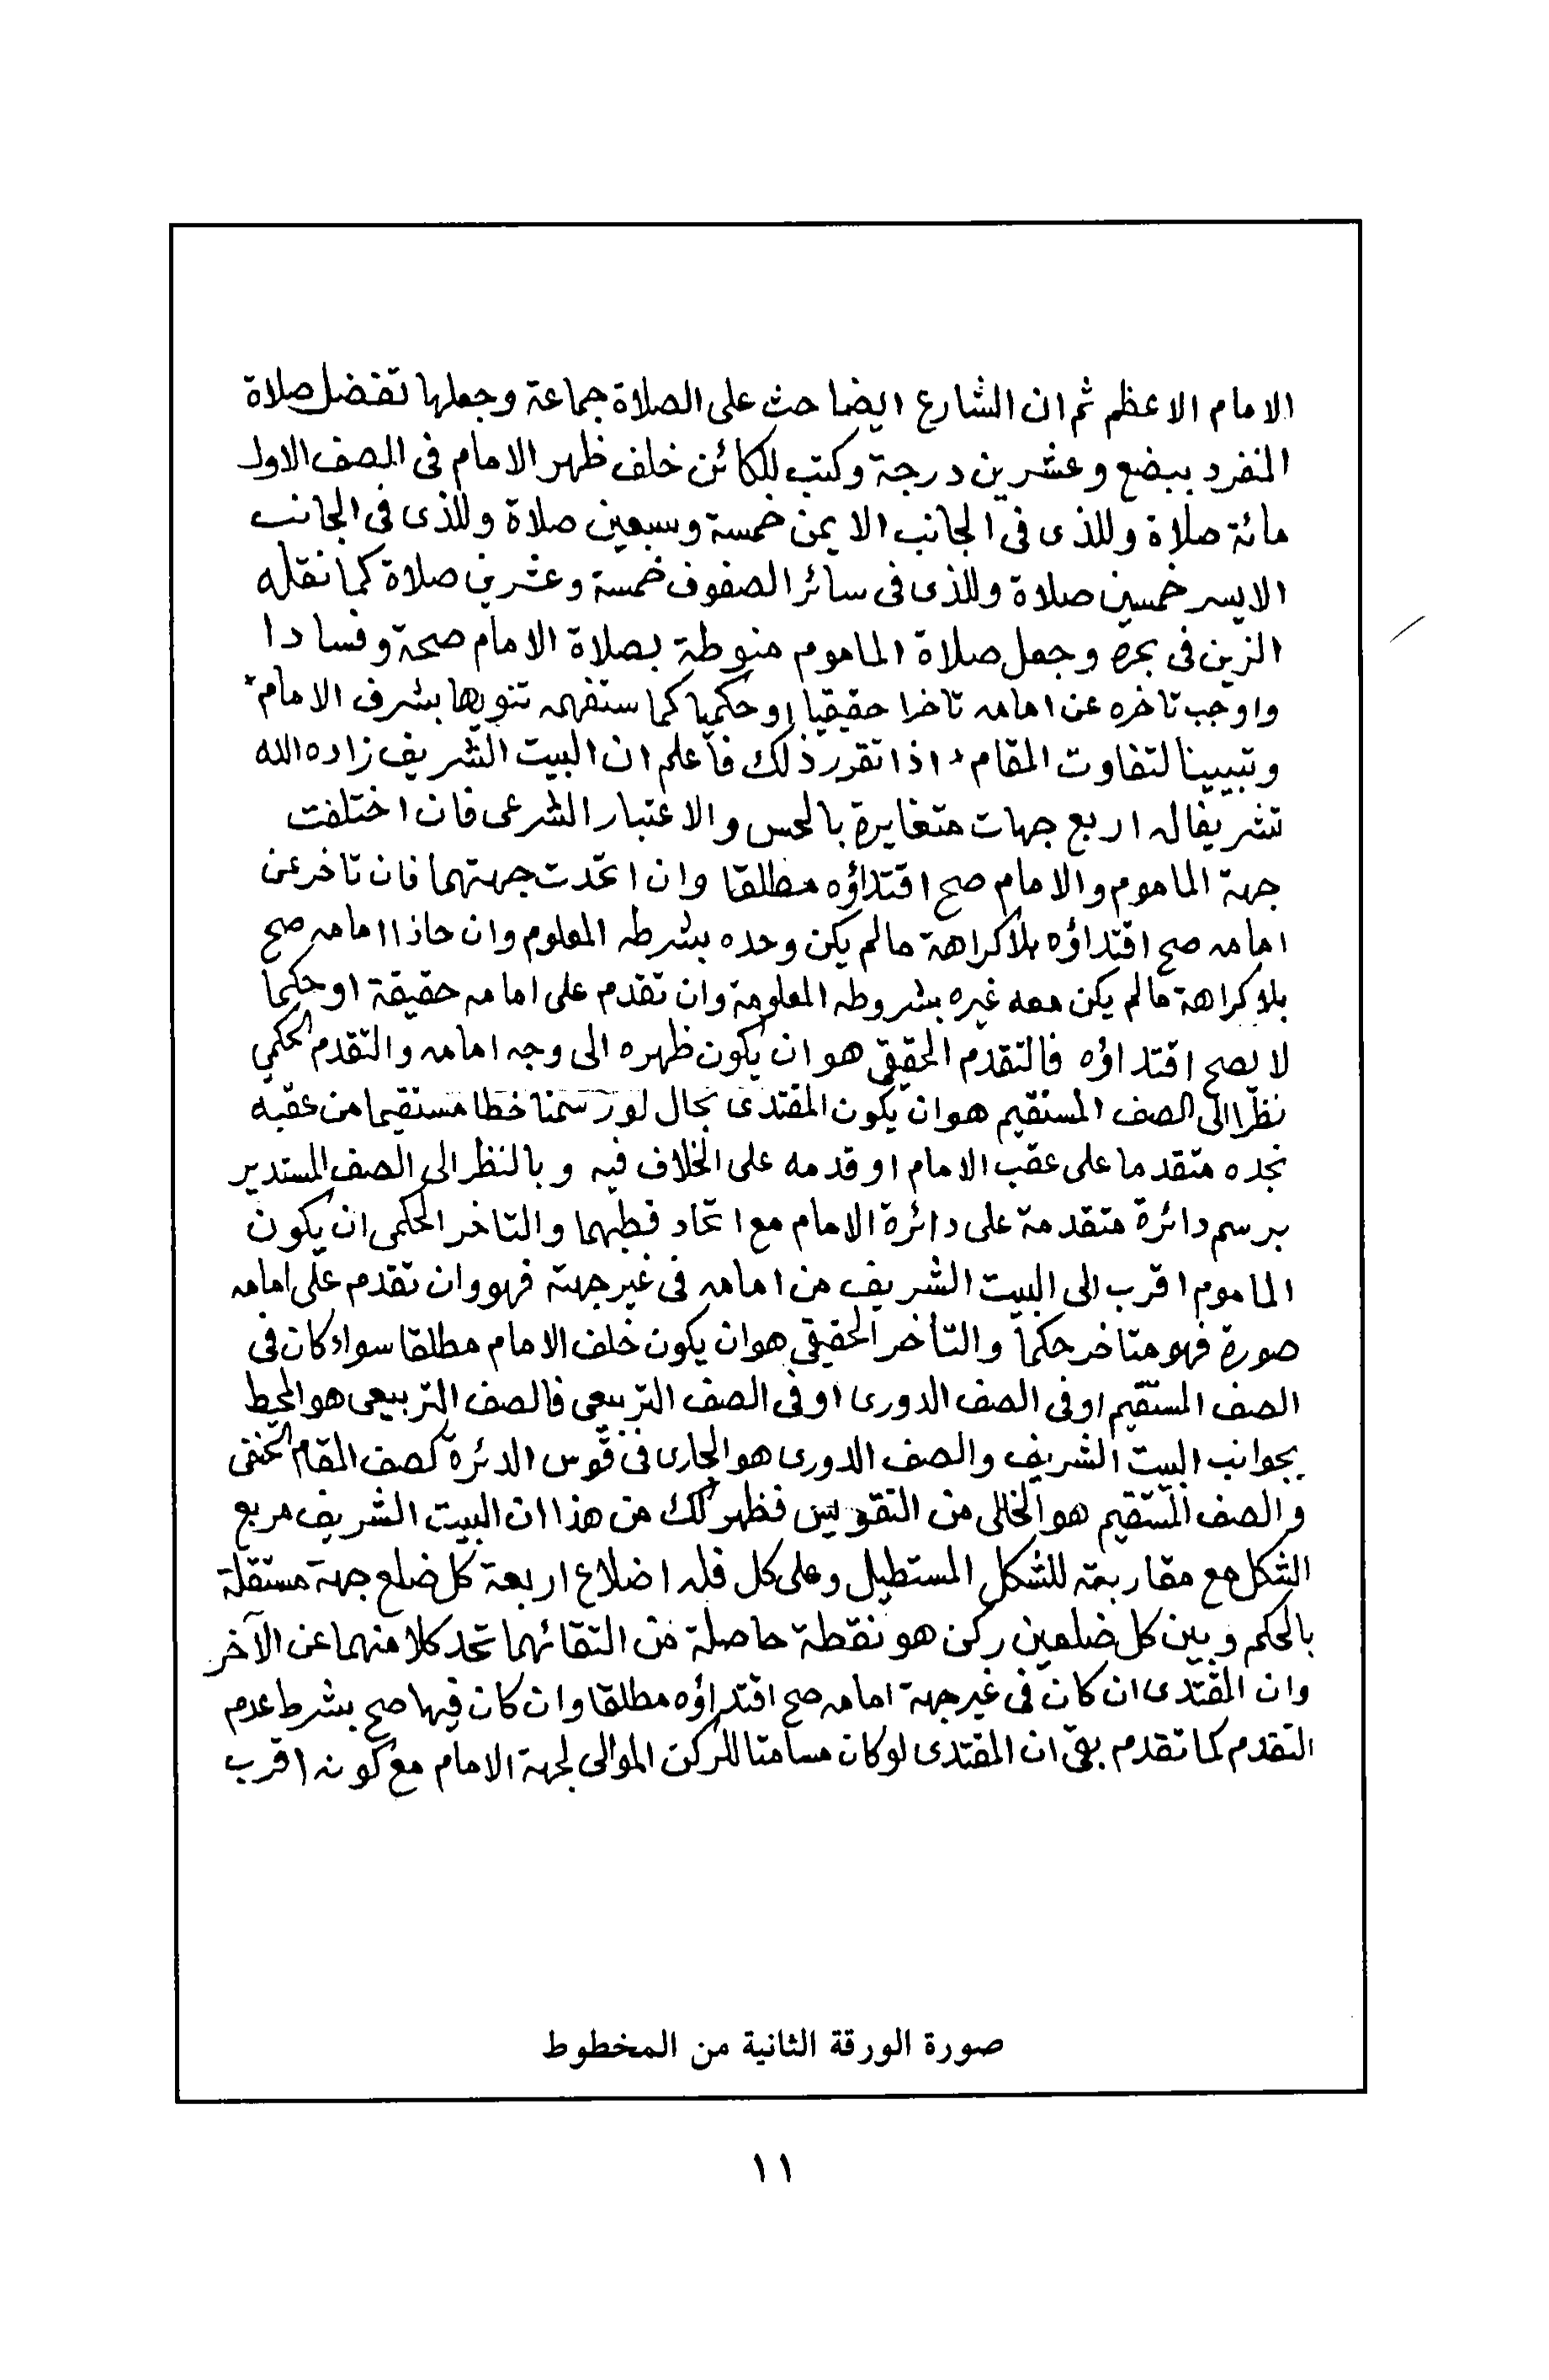 الامام الاعظم ثم ان الشارع ايضا حث على الصلاة جماعة وجعلها تفضل صلاة
المنفرد ببضع وعشرين درجة وكتب للكائن خلف ظهر الامام فى الصف الاول
مائة صلاة وللذى فى الجانب الايمن خمسة وسبعين صلاة وللذى فى الجانب
الايسر خمسين صلاة وللذى فى سائر الصفوف خمسة وعشرين صلاة كما نقله
الزين فى بحره وجعل صلاة الماموم منوطة بصلاة الامام صحة وفسادا
واوجب تاخره عن امامه تاخرا حقيقيا او حكميا كما ستفهمه تنويها بشرف الامام
وتبيينا لتفاوت المقام اذا تقرر ذلك فاعلم ان البيت الشريف زاده الله
تشريفا له اربع جهات متغايرة بالحس والاعتبار الشرعى فان اختلفت
جهة الماموم والامام صح اقتداؤه مطلقا وان اتحدت جهتهما فان تاخر عن
امامه صح اقتداؤه بلا كراهة مالم يكن وحده بشرطه المعلوم وان حاذا امامه صح
بلا كراهة مالم يكن معه غيره بشروطه المعلومة وان تقدم على امامه حقيقة او حكما
لا يصح اقتداؤه فالتقدم الحقيقى هو ان يكون ظهره الى وجه امامه والتقدم الحكمي
نظرا الى الصف المستقيم هو ان يكون المقتدى بحال لو رسمنا خطا مستقيما من عقبه
نجده متقدما على عقب الامام او قدمه على الخلاف فيه وبالنظر الى الصف المستدير
برسم دائرة متقدمة على دائرة الامام مع اتحاد قطبهما والتاخر الحكمى ان يكون
الماموم اقرب الى البيت الشريف من امامه فى غير جهته فهو وان تقدم على امامه
صورة فهو متاخر حكما والتأخر الحقيقى هو ان يكون خلف الامام مطلقا سواء كان فى
الصف المستقيم او فى الصف الدورى او فى الصف التربيعى فالصف التربيعى هو المحيط
بجوانب البيت الشريف والصف الدورى هو الجارى فى قوس الدئرة كصف المقام الحنفى
والصف المستقيم هو الخالى من التقويس فظهر لك من هذا ان البيت الشريف مربع
الشكل مع مقاربته للشكل المستطيل وعلى كل فله اضلاع اربعة كل ضلع جهة مستقلة
بالحكم وبين كل ضلعين ركن هو نقطة حاصلة من التقائهما تحد كلا منهما عن الآخر
وان المقتدى ان كان فى غير جهة امامه صح اقتداؤه مطلقا وان كان فيها صح بشرط عدم
التقدم كما تقدم بقى ان المقتدى لو كان مسامتا للركن الموالى لجهة الامام مع كونه اقرب
صورة الورقة الثانية من المخطوط
١١